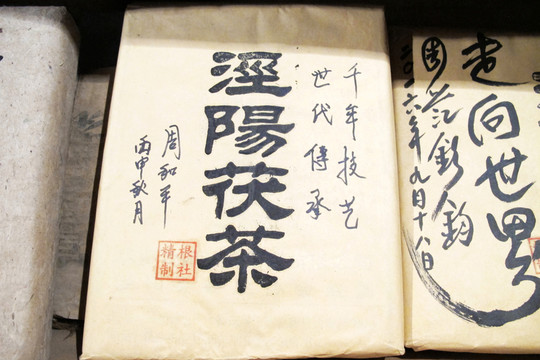 千年技艺
世代傳承
涇陽茯茶
周和平
丙申秋月
根社
精制
走向世界
二〇一六年九月十八日